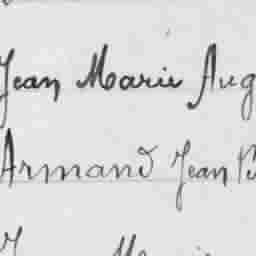 Jean Marie Aug
Armand Jean